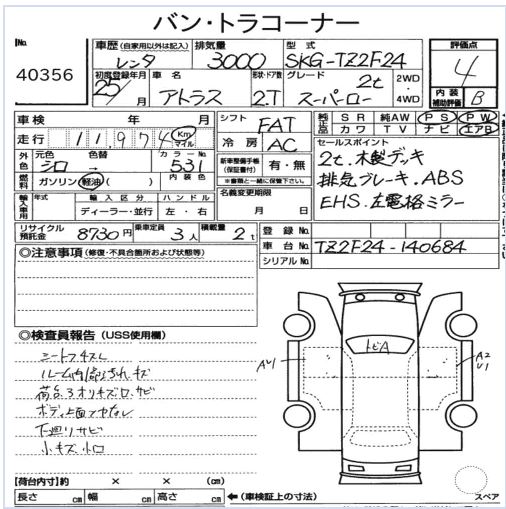 バン・トラコーナー
No. 40356
車歴 (自家用以外は記入) レンタ 排気量 3000 型式 SKG-TZ2F24 評価点 4
初度登録年月 25/月 車名 アトラス 形状・ドア数 2.T グレード 2t スーパーロー 2WD・4WD 内装補助評価 B
車検 年 月 シフト FAT 純正品 SR 純AW PS PW
走行 11,974 Km マイル 冷房 AC カワ TV ナビ エアB
外色 元色 シロ 色替 カラーNo. 531 新車整備手帳(保証書付) 有・無 セールスポイント
燃料 ガソリン 軽油 ( ) 内装色 ※書類と一緒に保管下さい。 2t.木製デッキ
輸入車用 年式 輸入区分 ハンドル 名義変更期限 排気ブレーキ.ABS
ディーラー・並行 左・右 月 日 EHS.左電格ミラー
リサイクル預託金 8730円 乗車定員 3人 積載量 2t 登録No.
車台No. TZ2F24-140684
シリアルNo.
◎注意事項 (修復・不具合箇所および状態等)
◎検査員報告 (USS使用欄)
シートフキスレ
ルーム内部汚れ、キズ
荷台、3オリキズ凹、サビ
下廻りサビ
小キズ小凹
トビA
AU1
A2
U1
【荷台内寸】約 × × (cm)
長さ cm 幅 cm 高さ cm ←(車検証上の寸法)
スペア